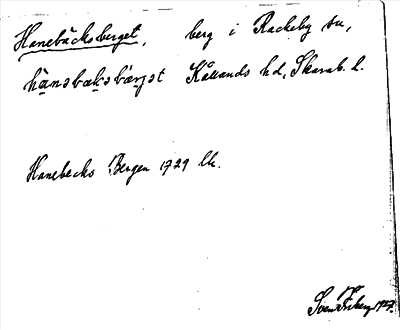 Hanebäcksberget, berg i Rackeby sn,
hànəbæksbærjət Kållands hd, Skarab. l.
Hanebecks Bergen 1729 lk.
Sven Friberg 1927.